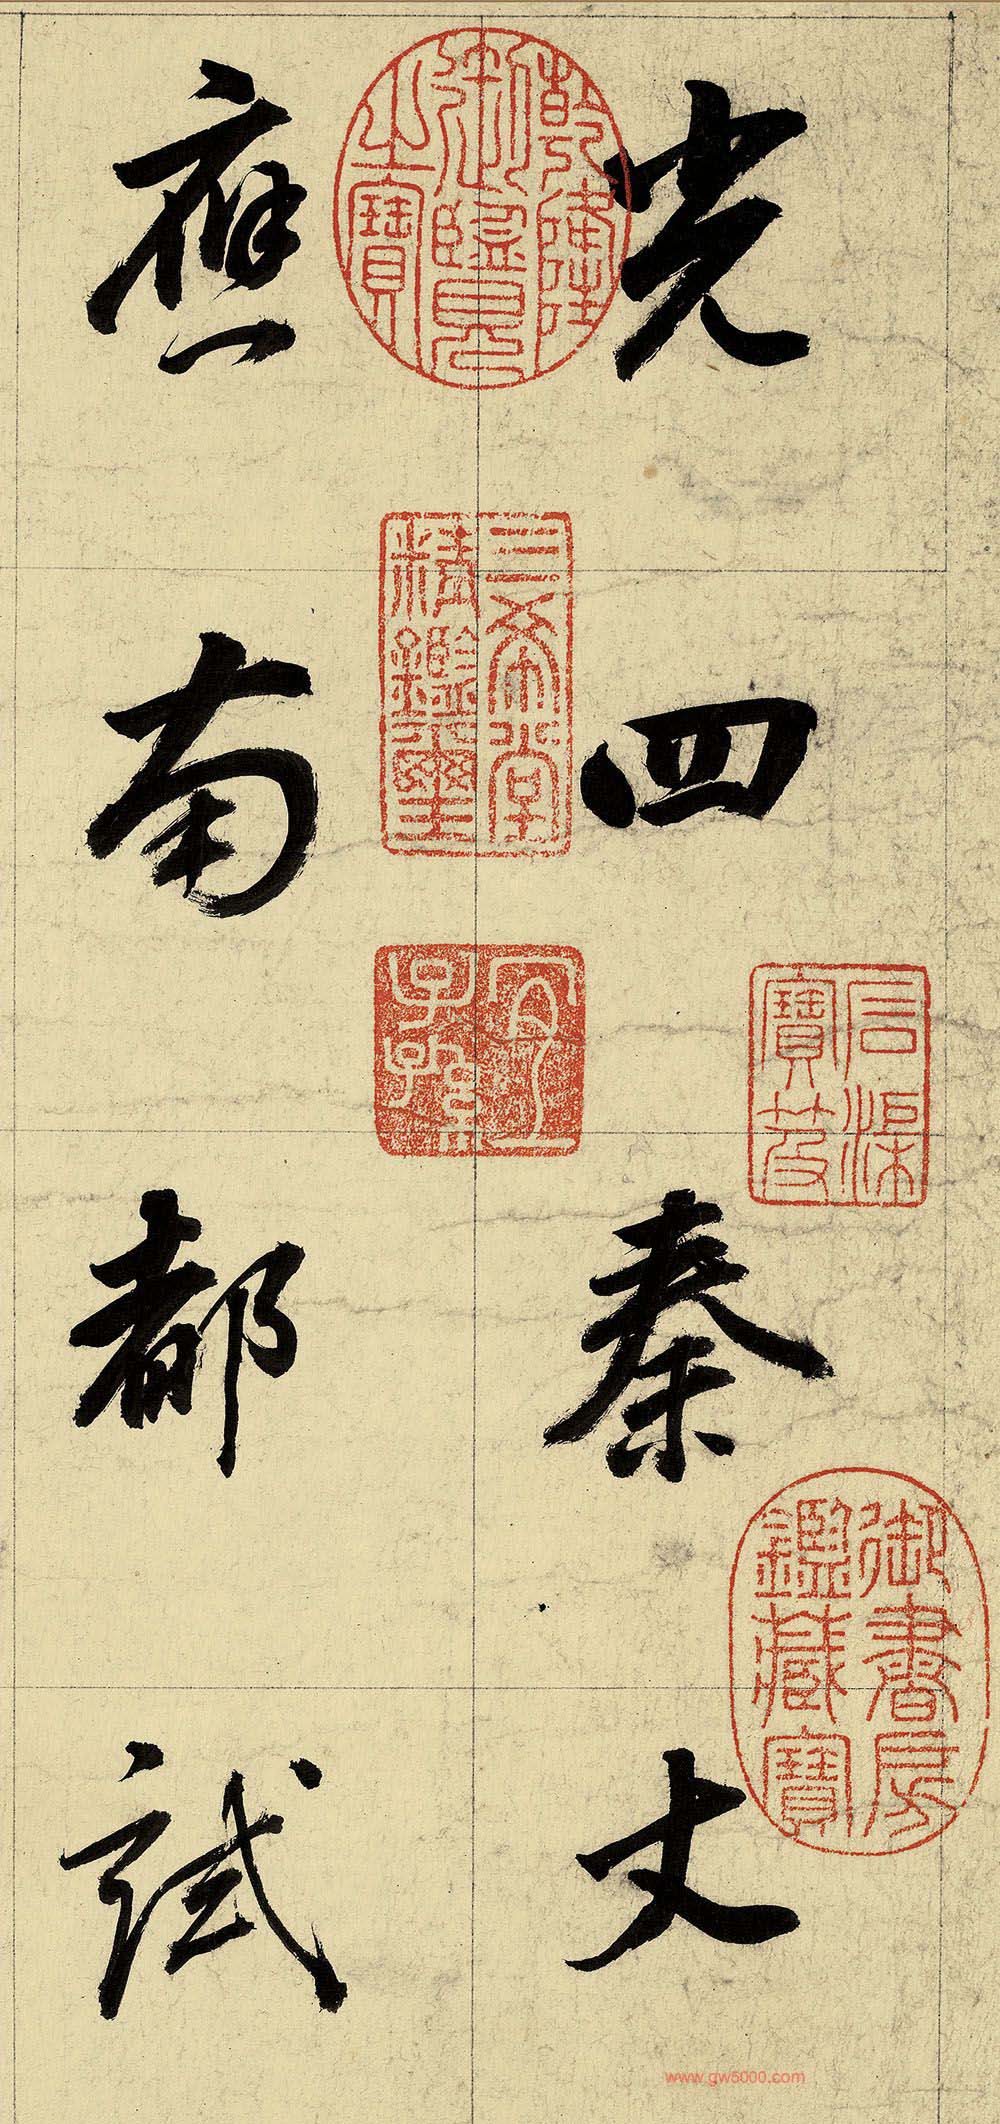 石渠寶笈
御書房鑑藏寶
光四秦丈
乾隆御覽之寶
三希堂精鑑璽
宜子孫
應南都試
www.gw5000.com